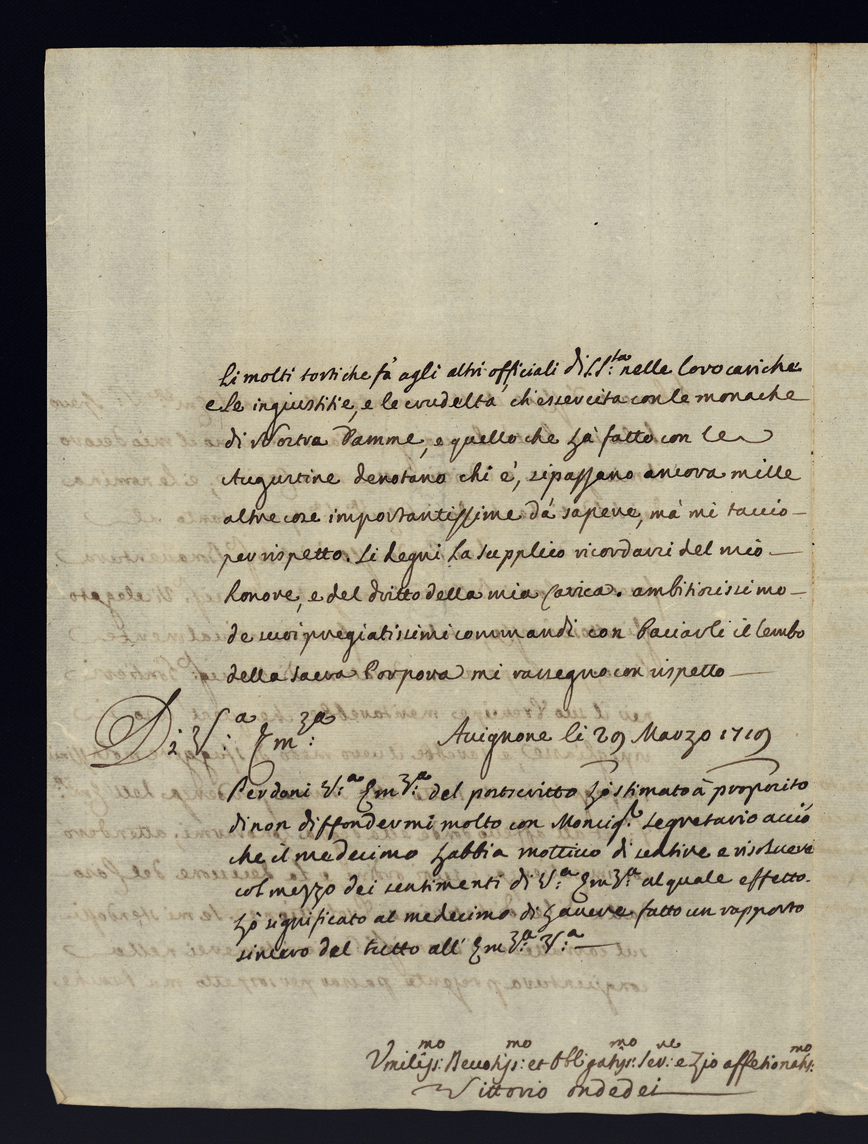 Li molti torti che fà agli altri officiali di S.S:ta nelle loro cariche
e Le ingiustitie, e le crudeltà ch'essercita con le monache
di Nostra Damme, e quello che hà fatto con le
Augustine denotano chi è, si passano ancora mille
altre cose importantissime dà sapere, mà mi taccio
per rispetto. Si degni La supplico ricordarsi del mio
honore, e del dritto della mia Carica. ambitiosissimo
de suoi pregiatissimi commandi con baciarli il lembo
della sacra Porpora mi rassegno con rispetto
Di V:a Emza: Avignone li 29 Marzo 1719
Perdoni V:a Emza: del postscritto hò stimato à proposito
di non diffondermi molto con Monsigr: segretario acciò
che il medecimo habbia mottivo di sentire e risolvere
col mezzo dei sentimenti di V:a Emza: al quale effetto
hò significato al medecimo di havere fatto un rapporto
sincero del tutto all' Emza: V:a
Umiliss:mo Devotiss:mo et Obligatiss:mo Ser:re e Zio affetionatiss:mo
Vittorio Ondedei